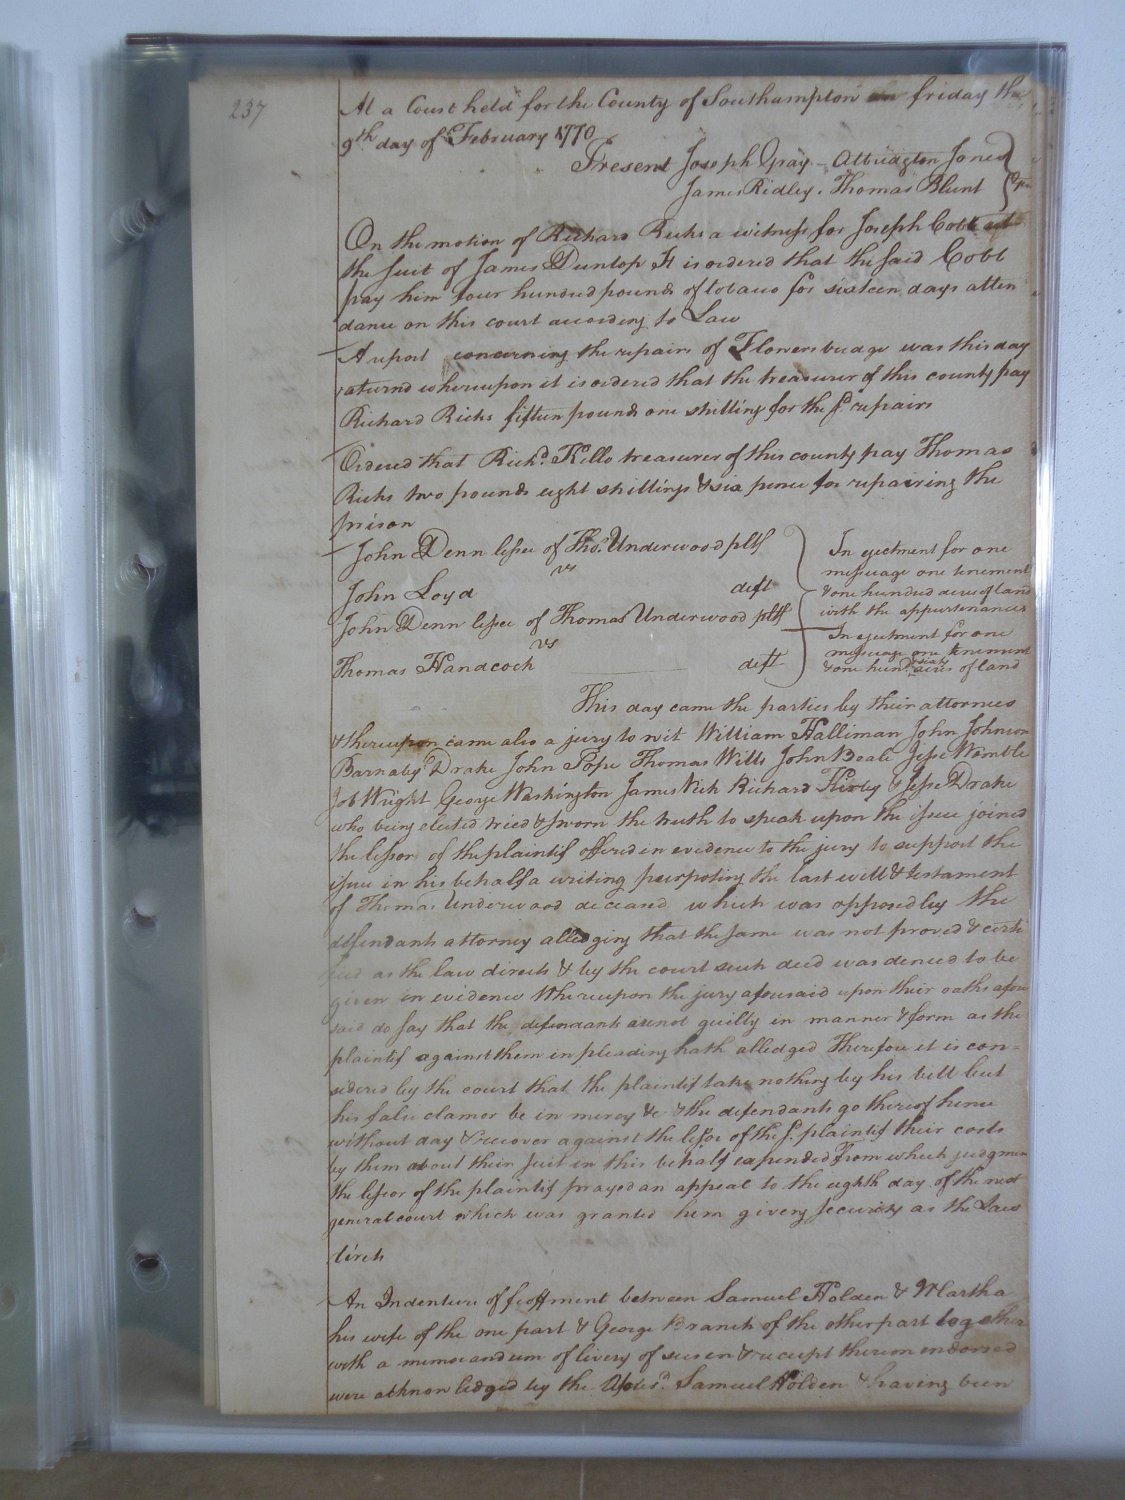 237
At a Court held for the County of Southampton on friday the
9th day of February 1770
Present Joseph Gray - Albridgton Jones
James Ridley. Thomas Blunt
On the motion of Richard Ricks a witness for Joseph Cobb at
the suit of James Dunlop It is ordered that the said Cobb
pay him four hundred pounds of tobacco for sixteen days atten
dance on this court according to Law
A report concerning the repairs of Flowers bridge was this day
returnd whereupon it is ordered that the treasurer of this county pay
Richard Ricks fifteen pounds one shilling for the sd. repairs
Ordered that Richd. Kello treasurer of this county pay Thomas
Ricks two pounds eight shillings & six pence for repairing the
prison
John Denn lessee of Thos. Underwood pltf
vs
John Loyd deft
In ejectment for one
messuage one tenement
& one hundred acres of land
with the appurtenances
John Denn lessee of Thomas Underwood pltf
vs
Thomas Handcock deft
In ejectment for one
messuage one tenement
& one hund acres of land
This day came the parties by their attornies
& thereupon came also a jury to wit William Halliman John Johnson
Barnaby Drake John Pope Thomas Wills John Beale Jesse Womble
Job Wright George Washington James Vick Richard Kirby & Jesse Drake
who being elected tried & sworn the truth to speak upon the issue joined
the lessor of the plaintif offered in evidence to the jury to support the
issue in his behalf a writing purporting the last will & testament
of Thomas Underwood deceased which was opposed by the
defendants attorney alledging that the same was not proved & certi
fied as the law directs & by the court such deed was denied to be
given in evidence Whereupon the jury aforesaid upon their oaths afore
said do say that the defendants are not guilty in manner & form as the
plaintif against them in pleading hath alledged Therefore it is con=
sidered by the court that the plaintif take nothing by his bill but
his false clamor be in mercy &c & the defendants go thereof hence
without day & recover against the lessor of the sd. plaintif their costs
by them about their suit in this behalf expended From which judgment
the lessor of the plaintif prayed an appeal to the eighth day of the next
general court which was granted him giveng security as the Law
direts
An Indenture of feoffment between Samuel Holden & Martha
his wife of the one part & George Branch of the other part together
with a memorandum of livery of seisen & receipt thereon endorsed
were acknowledged by the aforesd. Samuel Holden & having been